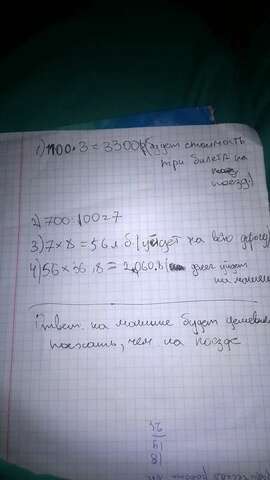 1) 1100·3=3300р(будет стоимость
три билета на
поезд)
2) 700:100=7
3) 7×8=56л.б.(уйдет на всю дорогу)
4) 56×36,8=2060,8( денег уйдет
на машине
Ответ: на машине будет дешевле
поехать, чем на поезде
18
19